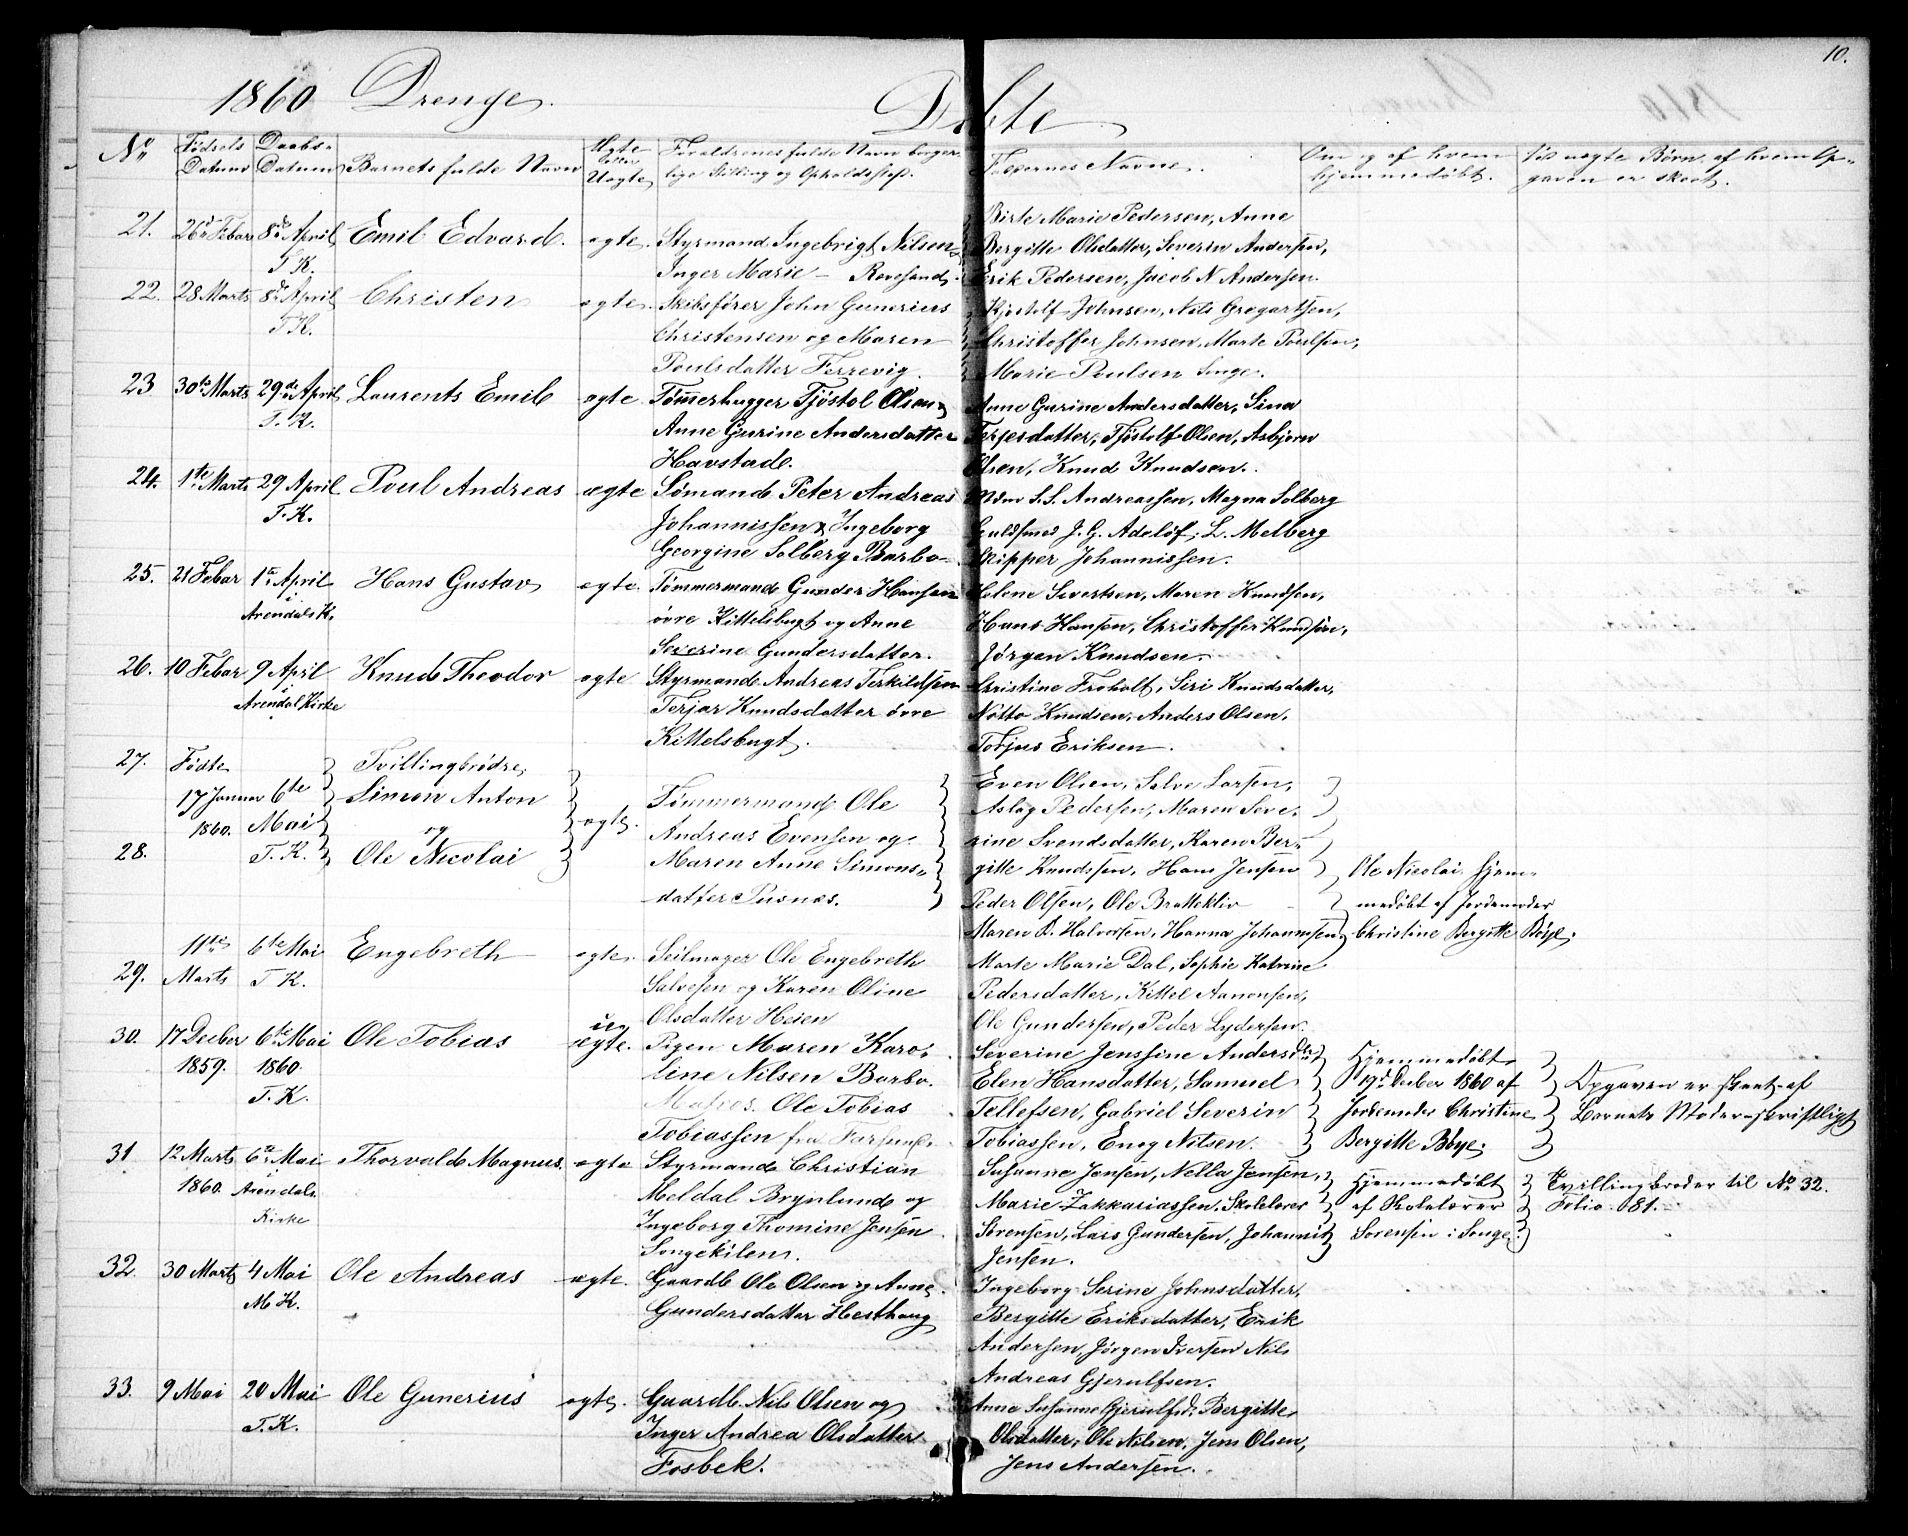 10.
1860 Drenge. Døbte
No Fødsels Datum Daabs-Datum Barnets fulde Navn Ægte eller Uægte Forældrenes fulde Navn borger-
lige Stilling og Opholdssted. Faddernes Navne. Om og af hvem hjemmedøbt. Ved uægte Børn, af hvem Op-
gaven er skeet.
21. 26de Febar 8de April T K. Emil Edvard. ægte. Styrmand Ingebrigt Nilsen
Inger Marie – Revesand.
Birte Marie Pedersen, Anne
Bergitte Olsdatter, Severin Andersen,
Erik Pedersen, Jacob N Andersen.
22. 28 Marts 8de April T K. Christen ægte. Skibsfører John Gunerius
Christensen og Maren
Poulsdatter Ferrevig.
Kjøstolf Johnsen, Nils Gregartsen,
Christoffer Johnsen, Marte Poulsen,
Marie Poulsen Songe.
23 30te Marts 29de April T. K. Laurents Emil ægte Tømerhugger Tjøstol Olsen,
Anne Gurine Andersdatter
Havstad.
Anne Gurine Andersdatter, Sina
Terjesdatter, Tjøstolf Olsen, Asbjørn
Olsen, Knud Knudsen.
24. 1te Marts 29 April T. K. Poul Andreas ægte Sømand Peter Andreas
Johannissen & Ingeborg
Georgine Solberg Barbo
Mdm S. S. Andreassen, Magna Solberg
Guldsmed J. G. Adeløf, L. Melberg
Skipper Johannissen.
25. 21 Febar 1te April i Arendals K. Hans Gustav ægte. Tømmermand Gunder Hansen
øvre Kittelsbugt og Anne
Severine Gundersdatter.
Helene Sivertsen, Maren Knudsen,
Hans Hansen, Christoffer Knudsen,
Jørgen Knudsen.
26. 10 Febar 9 April i Arendal Kirke Knud Theodor ægte Styrmand Andreas Terkildsen
Terjer Knudsdatter øvre
Kittelsbugt.
Christine Froholt, Siri Knudsdatter,
Notto Knudsen, Anders Olsen,
Torjus Eriksen.
27. Fødte 17 Januar 1860. 6te Mai T. K. Tvillingbrødre,
Simon Anton
og
28. Ole Nicolai ægte. Tømmermand Ole
Andreas Evensen og
Maren Anne Simons-
datter Pusnes.
Even Olsen, Salve Larsen,
Aslag Pedersen, Maren Seve-
rine Svendsdatter, Karen Ber-
gitte Knudsen, Hans Jensen
Peder Olsen, Ole Bratteklev
Maren B. Halvorsen, Hanna Johannesen
Ole Nicolai hjem-
medøbt af Jordemoder
Christine Bergitte Böye.
29. 11te Marts 6te Mai T K. Engebreth ægte. Seilmager Ole Engebreth
Salvesen og Karen Oline
Olsdatter Heien
Marte Marie Dal, Sophie Katrine
Pedersdatter, Kittel Aanonsen,
Ole Gundersen, Peder Lydersen.
30. 17 Decber 1859. 6te Mai 1860. T. K. Ole Tobias uægte. Pigen Maren Karo-
line Nilsen Barbo.
Matros Ole Tobias
Tobiassen fra Farsund.
Severine Jenssine Andersdtr
Elen Hansdatter, Samuel
Tellefsen, Gabriel Severin
Tobiassen, Enog Nilsen.
Hjemmedøbt
17de Decber 1860 af
Jordemoder Christine
Bergitte Böye.
Opgaven er skeet af
Barnets Moder skriftligt
31. 12 Marts 1860. 6te Mai i Arendals Kirke Thorvald Magnus. ægte Styrmand Christian
Meldal Brynlund og
Ingeborg Thomine Jensen
Songekilen.
Susanne Jensen, Nella Jensen,
Marie Zakkariassen, Skolelærer
Sørensen, Lars Gundersen, Johannis
Jensen.
Hjemmedøbt
af Skolelærer
Sørensen i Songe.
Tvillingbroder til No 32.
Folio 81.
32. 30 Marts 4 Mai M K. Ole Andreas ægte. Gaardb Ole Olsen og Anne
Gundersdatter Hesthaug
Ingeborg Serine Johnsdatter,
Bergitte Eriksdatter, Erik
Andersen, Jørgen Iversen Nils
Andreas Gjerulfsen.
33. 9 Mai 20 Mai T. K. Ole Gunerius ægte. Gaardb. Nils Olsen og
Inger Andrea Olsdatter
Fosbek.
Anne Susanne Gjerulfsd. Bergitte
Olsdatter, Ole Nilsen, Jens Olsen,
Jens Andersen.